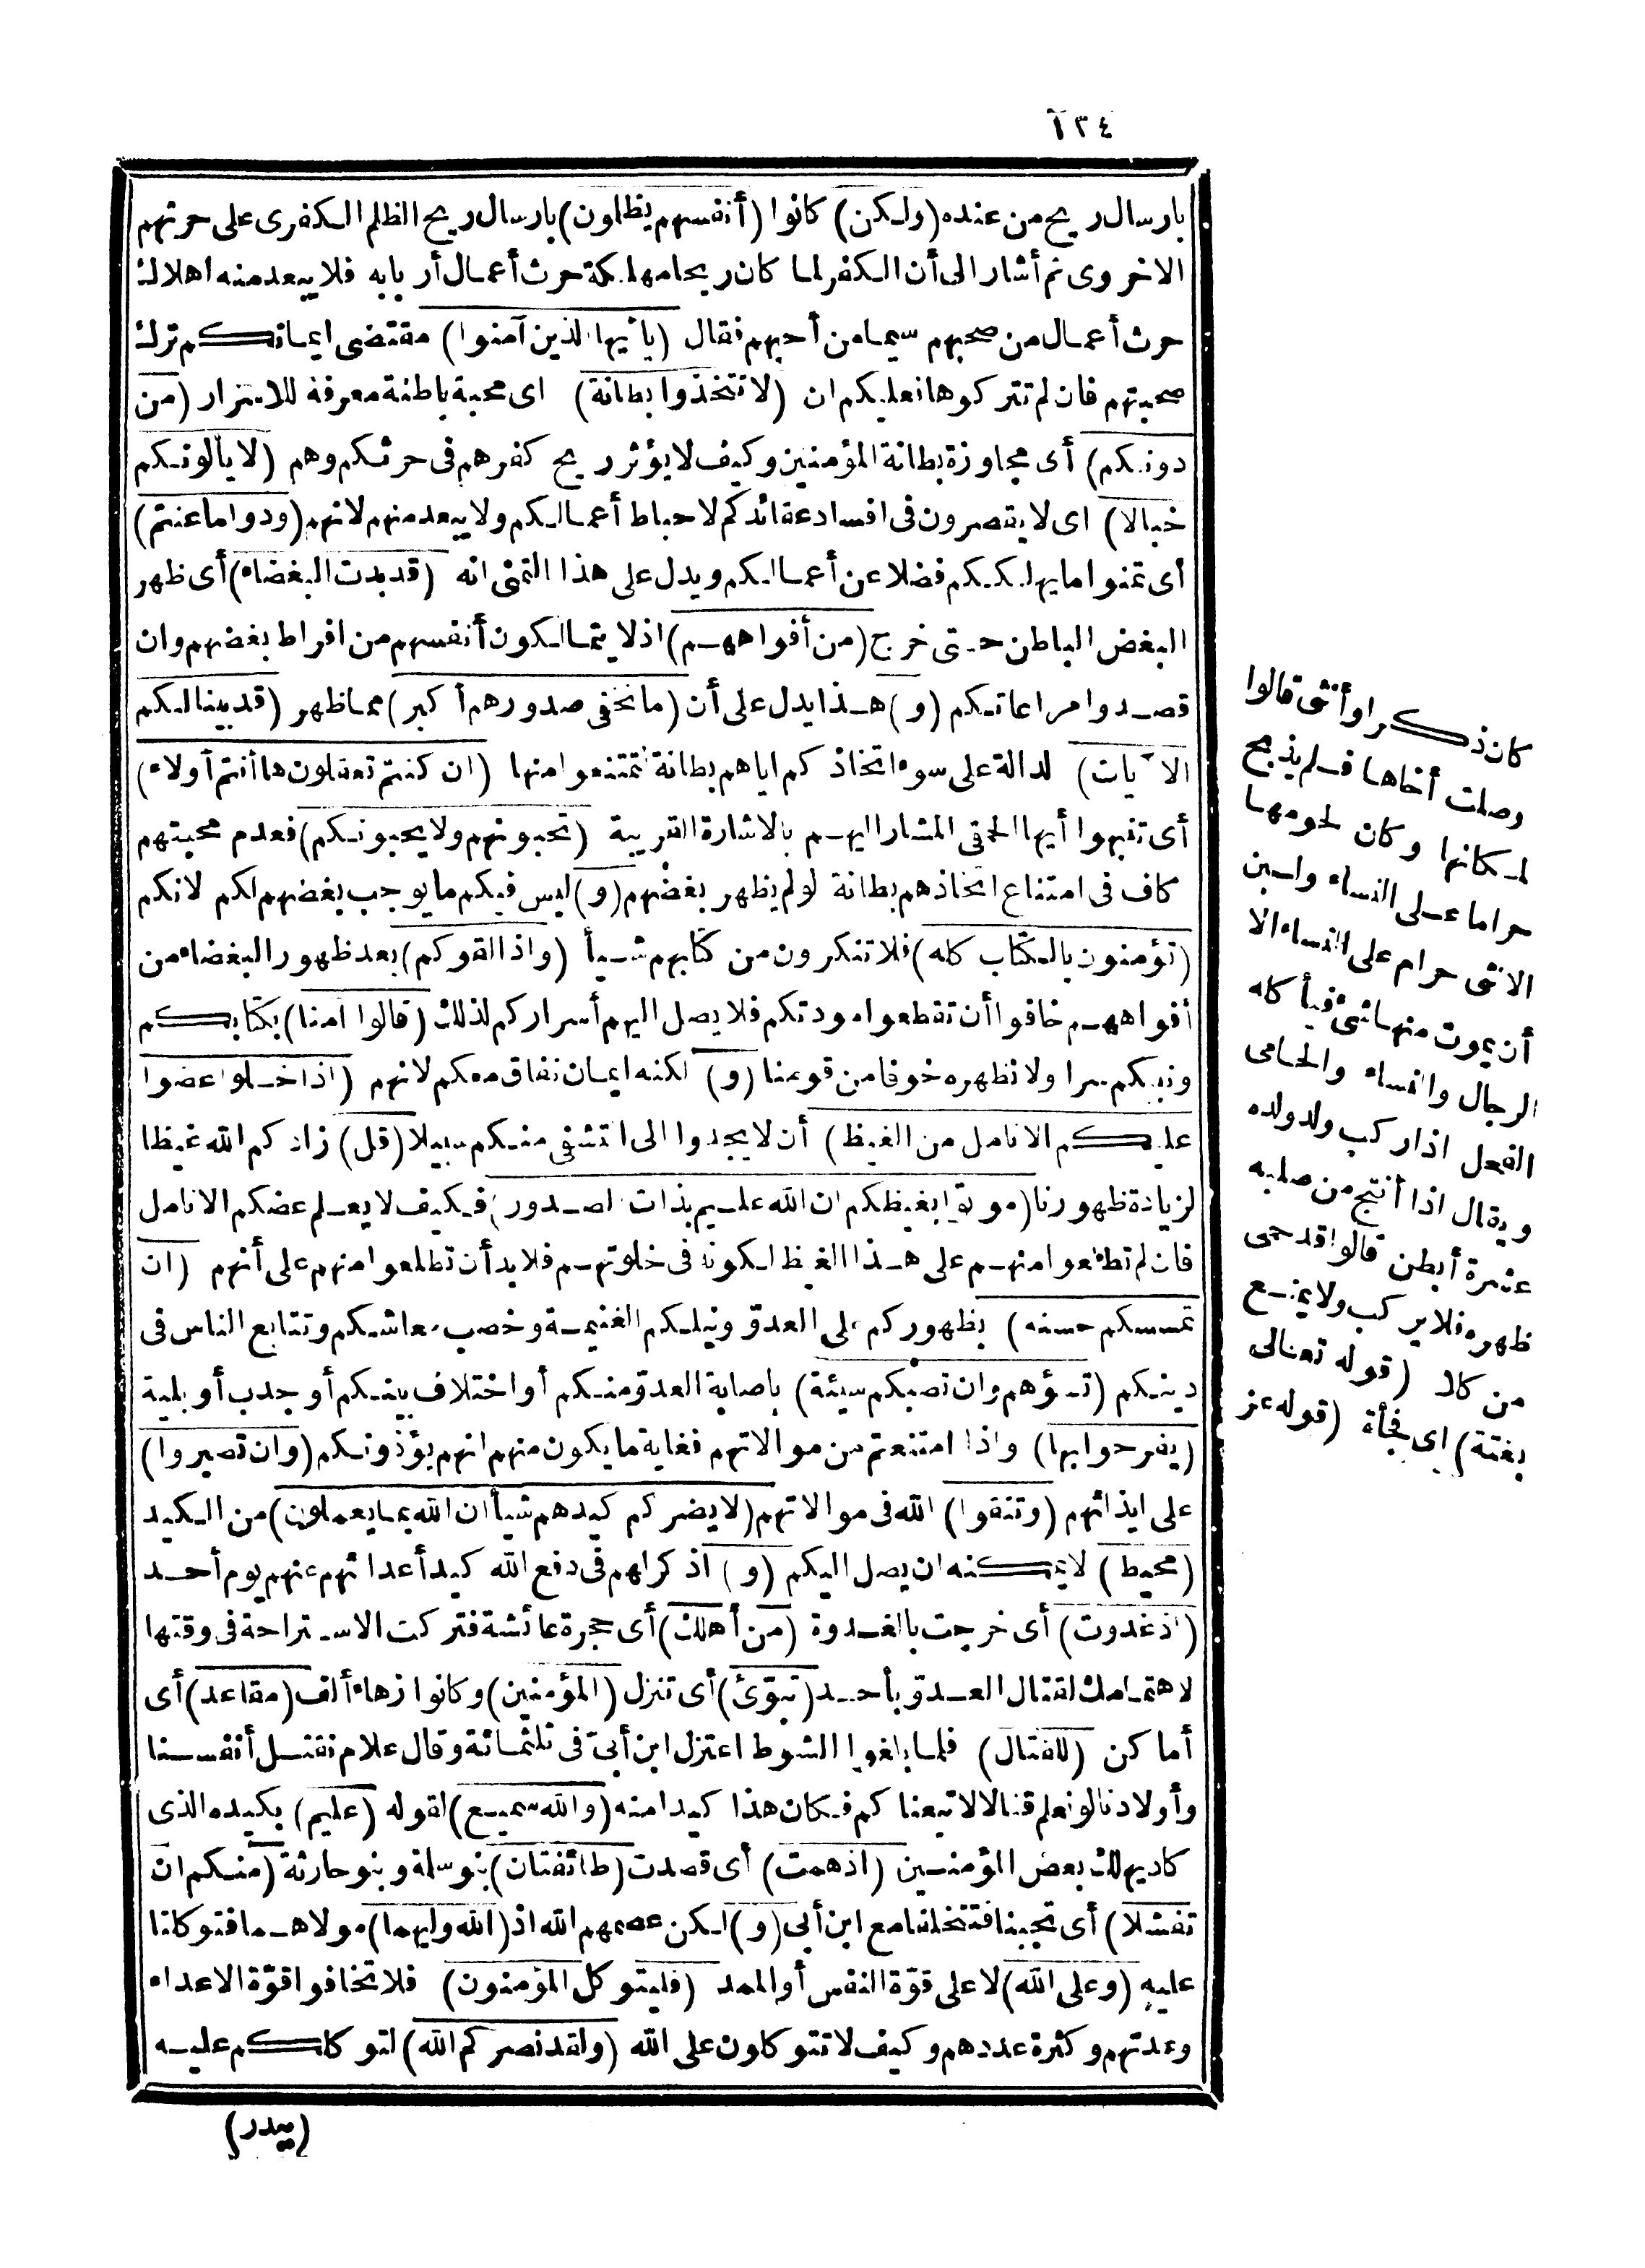 ١٣٤
بارسال ريح من عنده (ولكن) كانوا (أنفسهم يظلمون) بارسال ريح الظلم الكفرى على حرثهم
الاخروى ثم أشار الى أن الكفر لما كان ريحا مهلكة حرث أعمال أربابه فلا يبعد منه اهلاك
حرث أعمال من صحبهم سيما من أحبهم فقال (يا أيها الذين آمنوا) مقتضى ايمانكم ترك
صحبتهم فان لم تتركوها فعليكم ان (لا تتخذوا بطانة) اى محبة باطنة معرفة للاسرار (من
دونكم) أى مجاوزة بطانة المؤمنين وكيف لا يؤثر ريح كفرهم فى حرثكم وهم (لا يألونكم
خبالا) اى لا يقصرون فى افساد عقائدكم لاحباط أعمالكم ولا يبعد منهم لانهم (ودوا ما عنتم)
أى تمنوا ما يهلككم فضلا عن أعمالكم ويدل على هذا التمنى انه (قد بدت البغضاء) أى ظهر
البغض الباطن حتى خرج (من أفواههم) اذ لا يتمالكون أنفسهم من افراط بغضهم وان
قصدوا مراعاتكم (و) هذا يدل على أن (ما تخفى صدورهم أكبر) مما ظهر (قد بينا لكم
الآيات) الدالة على سوء اتخاذكم اياهم بطانة لتمتنعوا منها (ان كنتم تعقلون ها أنتم أولاء)
أى تنبهوا أيها الحمقى المشار اليهم بالاشارة القريبة (تحبونهم ولا يحبونكم) فعدم محبتهم
كاف فى امتناع اتخاذهم بطانة لو لم يظهر بغضهم (و) ليس فيكم ما يوجب بغضهم لكم لانكم
(تؤمنون بالكتاب كله) فلا تنكرون من كتابهم شيأ (واذا لقوكم) بعد ظهور البغضاء من
أفواههم خافوا أن تقطعوا مودتكم فلا يصل اليهم أسراركم لذلك (قالوا آمنا) بكتابكم
ونبيكم سرا ولا نظهره خوفا من قومنا (و) لكنه ايمان نفاق معكم لانهم (اذا خلوا عضوا
عليكم الانامل من الغيظ) أن لا يجدوا الى التشفى منكم سبيلا (قل) زادكم الله غيظا
لزيادة ظهورنا (موتوا بغيظكم ان الله عليم بذات الصدور) فكيف لا يعلم عضكم الانامل
فان لم تطلعوا منهم على هذا الغيظ لكونه فى خلوتهم فلا بد أن تطلعوا منهم على أنهم (ان
تمسسكم حسنة) بظهوركم على العدو ونيلكم الغنيمة وخصب معاشكم وتتابع الناس فى
دينكم (تسؤهم وان تصبكم سيئة) باصابة العدو منكم أو اختلاف بينكم أو جدب أو بلية
(يفرحوا بها) واذا امتنعتم من موالاتهم فغاية ما يكون منهم انهم يؤذونكم (وان تصبروا)
على ايذائهم (وتتقوا) الله فى موالاتهم (لا يضركم كيدهم شيأ ان الله بما يعملون) من الكيد
(محيط) لا يمكنه ان يصل اليكم (و) اذكر لهم فى دفع الله كيد أعدائهم عنهم يوم أحد
(اذ غدوت) أى خرجت بالغدوة (من أهلك) أى حجرة عائشة فتركت الاستراحة فى وقتها
لاهتمامك لقتال العدو بأحد (تبوئ) أى تنزل (المؤمنين) وكانوا زهاء ألف (مقاعد) أى
أماكن (للقتال) فلما بلغوا الشوط اعتزل ابن أبى فى ثلثمائة وقال علام نقتل أنفسنا
وأولادنا لو نعلم قتالا لاتبعناكم فكان هذا كيدا منه (والله سميع) لقوله (عليم) بكيده الذى
كاد يهلك بعض المؤمنين (اذ همت) أى قصدت (طائفتان) بنو سلمة وبنو حارثة (منكم ان
تفشلا) أى تجبنا فتتخلفا مع ابن أبى (و) لكن عصمهم الله اذ (الله وليهما) مولاهما فتوكلتا
عليه (وعلى الله) لا على قوة النفس أو المدد (فليتوكل المؤمنون) فلا تخافوا قوة الاعداء
وعدتهم وكثرة عددهم وكيف لا تتوكلون على الله (ولقد نصركم الله) لتوكلكم عليه
(ببدر)
كان ذكرا وأنثى قالوا
وصلت أخاها فلم يذبح
لمكانها وكان لحومها
حراما على النساء ولبن
الانثى حرام على النساء الا
أن يموت منها شئ فيأكله
الرجال والنساء والحامى
الفحل اذا ركب ولد ولده
ويقال اذا أنتج من صلبه
عشرة أبطن قالوا قد حمى
ظهره فلا يركب ولا يمنع
من كلا (قوله تعالى
بغتة) اى فجأة (قوله عز